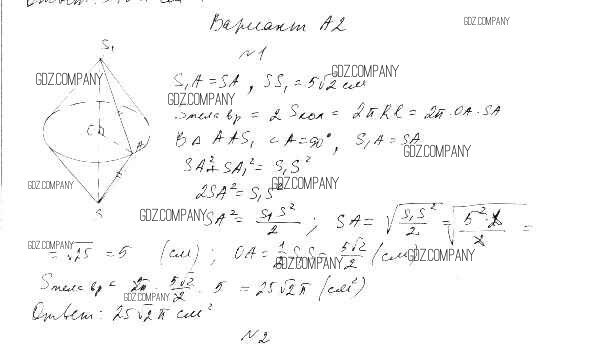 Вариант А2
GDZ.COMPANY
N1
S₁
S₁A = SA , SS₁ = 5√2 см
GDZ.COMPANY
GDZ.COMPANY
GDZ.COMPANY
Sтела вр = 2 Sкон = 2πRl = 2π·OA·SA
В △ ASS₁ ∠A = 90°, S₁A = SA
GDZ.COMPANY
A
SA² + SA₁² = S₁S²
GDZ.COMPANY
2SA² = S₁S²
GDZ.COMPANY
S
GDZ.COMPANY
SA² = S₁S²/2 ; SA = √(S₁S²/2) = √(5²·2/2) =
GDZ.COMPANY
= √25 = 5 (см) ; OA = 1/2 S₁S = 5√2/2 (см)
GDZ.COMPANY
GDZ.COMPANY
Sтела вр = 2π · 5√2/2 · 5 = 25√2π (см²)
GDZ.COMPANY
Ответ: 25√2π см²
N2